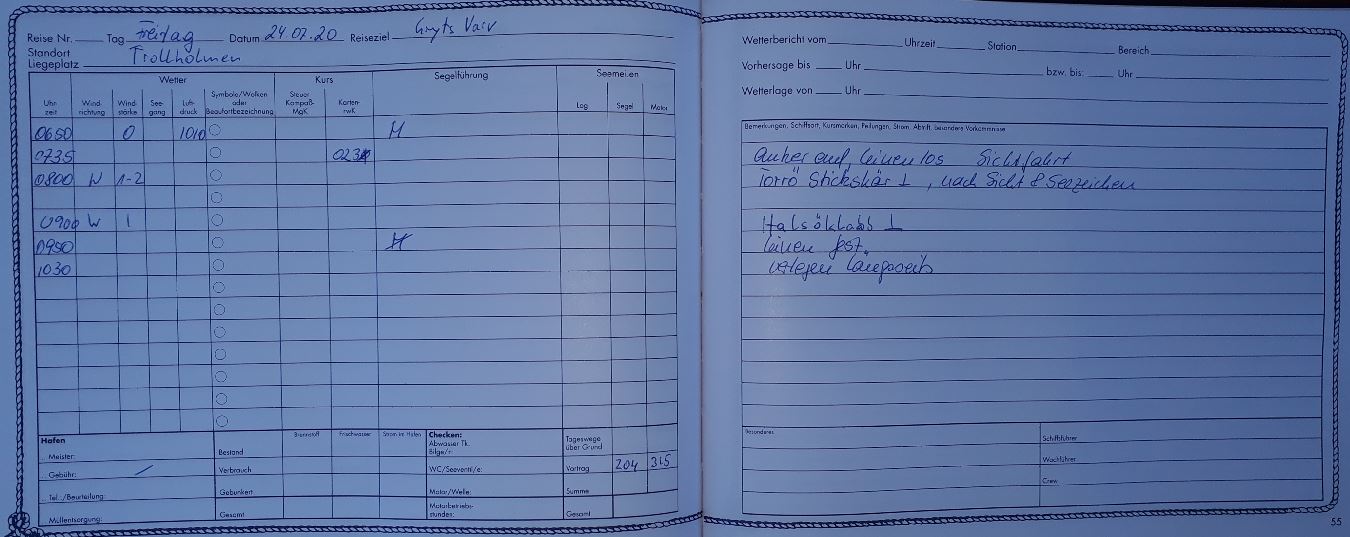 Reise Nr. Tag Freitag Datum 24.07.20 Reiseziel Gryts Varv
Standort
Liegeplatz Trollholmen
Wetter Kurs Segelführung Seemeilen
Uhr-
zeit Wind-
richtung Wind-
stärke See-
gang Luft-
druck Symbole/Wolken
oder
Beaufortbezeichnung Steuer
Kompaß-
MgK Karten-
rwK Log Segel Motor
0650 0 1010 M
0735 023
0800 W 1-2
0900 W 1
0950
1030
Hafen Brennstoff Frischwasser Strom im Hafen Checken:
Abwasser Tk.
Bilge/r: Tageswege
über Grund
Meister: Bestand
Gebühr: Verbrauch WC/Seeventil/e: Vortrag 204 315
Tel.:/Beurteilung: Gebunkert Motor/Welle: Summe
Müllentsorgung: Gesamt Motorbetriebs-
stunden: Gesamt
Wetterbericht vom Uhrzeit Station Bereich
Vorhersage bis Uhr bzw. bis: Uhr
Wetterlage von Uhr
Bemerkungen, Schiffsort, Kursmarken, Peilungen, Strom, Abtrift, besondere Vorkommnisse
Anker auf, leinenlos Sichtfahrt
Torrö Stickskär ⊥, nach Sicht & Seezeichen
Halsöklabb ⊥
Leinen fest,
verlegen längsseits
Besonderes Schiffsführer
Wachführer
Crew
55